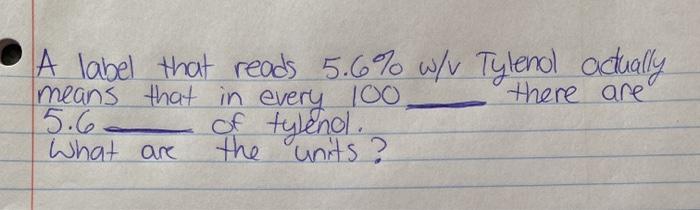 A label that reads 5.6% w/v Tylenol actually
means that in every 100 ____ there are
5.6 ____ of tylenol.
What are the units?